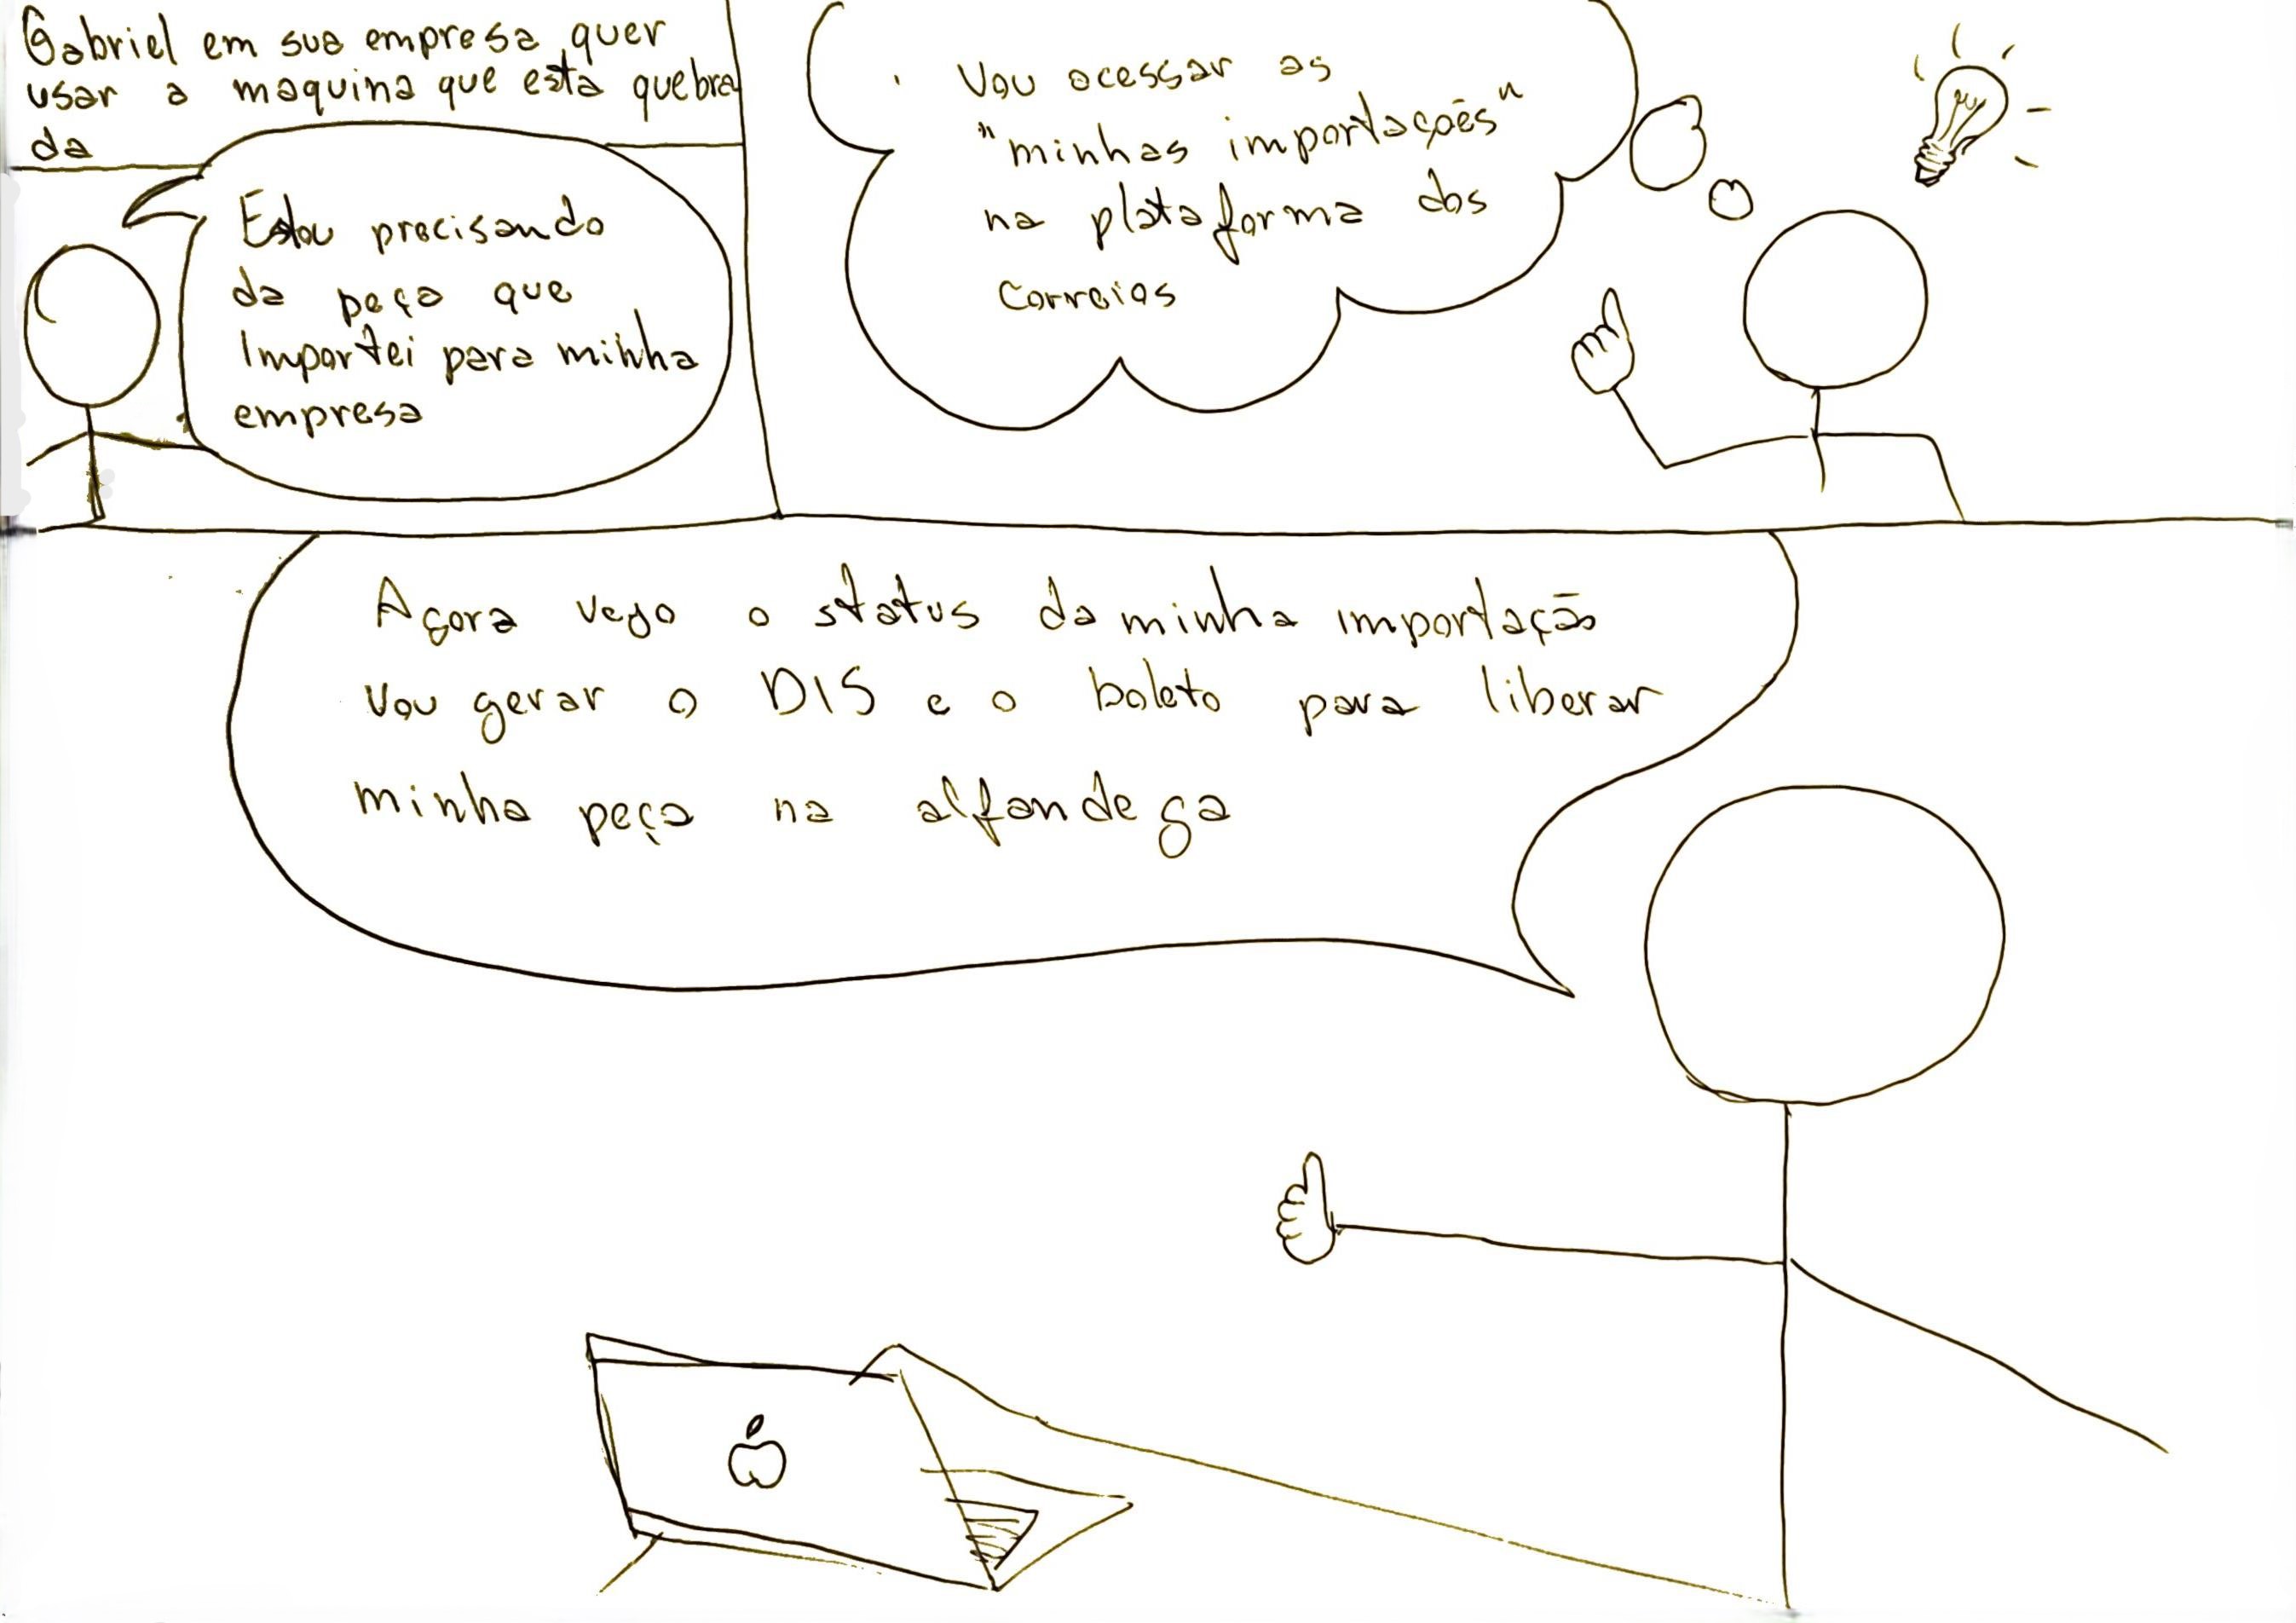 Gabriel em sua empresa quer
usar a maquina que esta quebra
da
Estou precisando
da peça que
Importei para minha
empresa
Vou acessar as
"minhas importações"
na plataforma dos
Correios
Agora vejo o status da minha importação
Vou gerar o DIS e o boleto para liberar
minha peça na alfandega